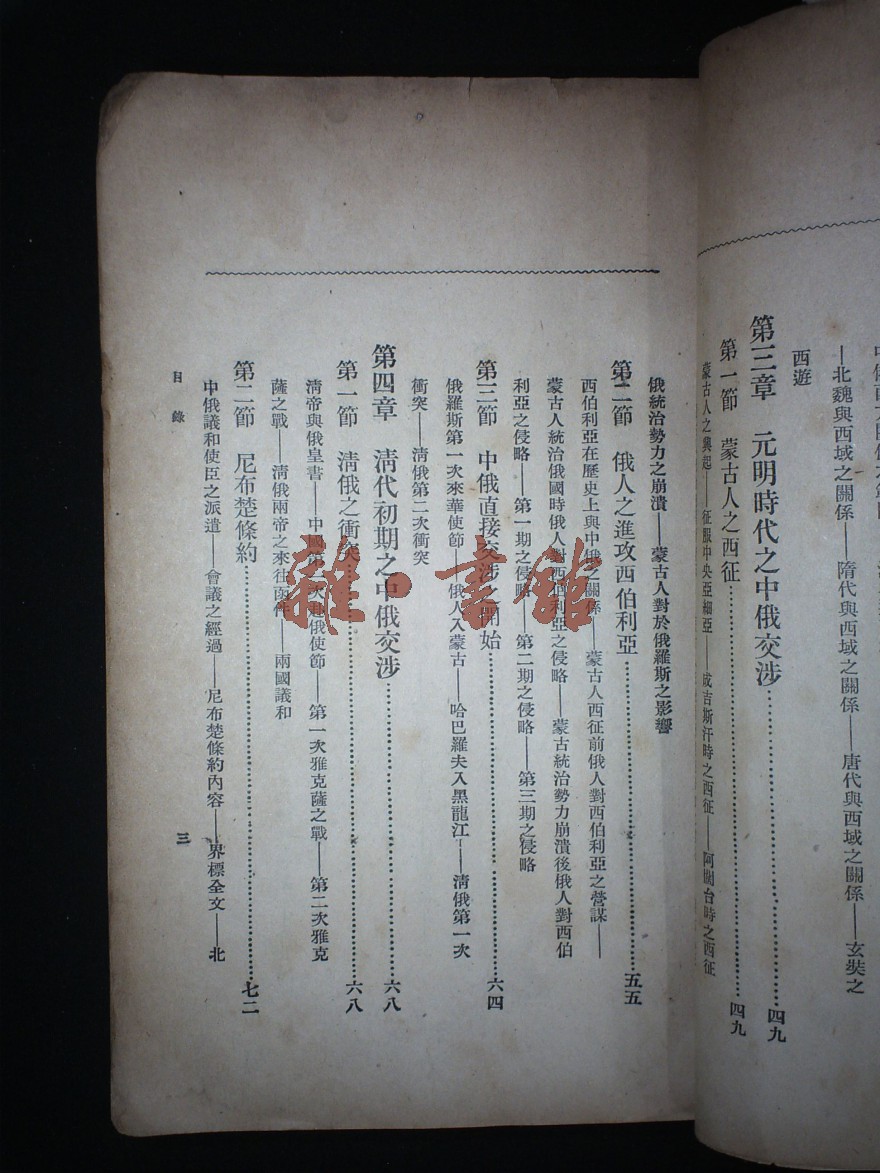 —北魏與西域之關係——隋代與西域之關係——唐代與西域之關係——玄奘之
西遊
第三章 元明時代之中俄交涉……四九
第一節 蒙古人之西征……四九
蒙古人之興起——征服中央亞細亞——成吉斯汗時之西征——阿闊台時之西征
俄統治勢力之崩潰——蒙古人對於俄羅斯之影響
第二節 俄人之進攻西伯利亞……五五
西伯利亞在歷史上與中俄之關係——蒙古人西征前俄人對西伯利亞之營謀——
蒙古人統治俄國時俄人對西伯利亞之侵略——蒙古統治勢力崩潰後俄人對西伯
利亞之侵略——第一期之侵略——第二期之侵略——第三期之侵略
第三節 中俄直接交涉之開始……六四
俄羅斯第一次來華使節——俄人入蒙古——哈巴羅夫入黑龍江——清俄第一次
衝突——清俄第二次衝突
第四章 清代初期之中俄交涉……六八
第一節 清俄之衝突……六八
清帝與俄皇書——中國第一次赴俄使節——第一次雅克薩之戰——第二次雅克
薩之戰——清俄兩帝之來往函件——兩國議和
第二節 尼布楚條約……七二
中俄議和使臣之派遣——會議之經過——尼布楚條約內容——界標全文——北
目錄
三
雜·書館